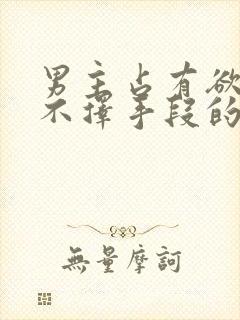 男主占有欲
不择手段的
無量摩訶